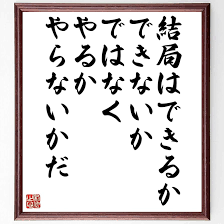 結局はできるか
できないか
ではなく
やるか
やらないかだ